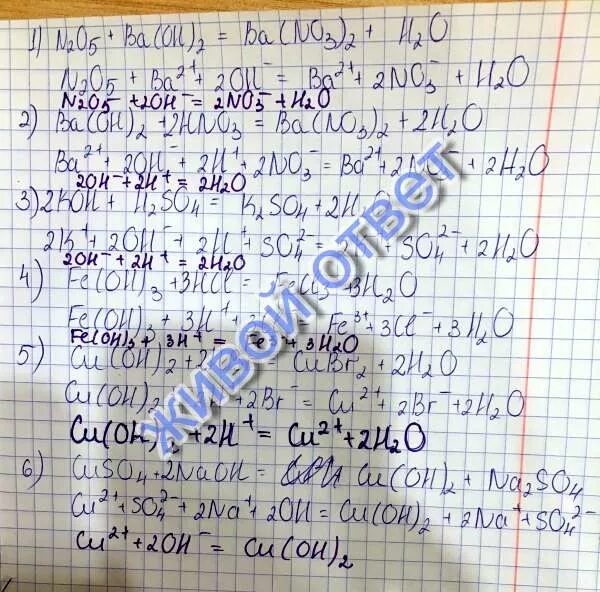 1) N2O5 + Ba(OH)2 = Ba(NO3)2 + H2O
N2O5 + Ba²⁺ + 2OH⁻ = Ba²⁺ + 2NO3⁻ + H2O
N2O5 + 2OH⁻ = 2NO3⁻ + H2O
2) Ba(OH)2 + 2HNO3 = Ba(NO3)2 + 2H2O
Ba²⁺ + 2OH⁻ + 2H⁺ + 2NO3⁻ = Ba²⁺ + 2NO3⁻ + 2H2O
2OH⁻ + 2H⁺ = 2H2O
3) 2KOH + H2SO4 = K2SO4 + 2H2O
2K⁺ + 2OH⁻ + 2H⁺ + SO4²⁻ = + SO4²⁻ + 2H2O
2OH⁻ + 2H⁺ = 2H2O
4) Fe(OH)3 + 3HCl = FeCl3 + 3H2O
Fe(OH)3 + 3H⁺ + = Fe³⁺ + 3Cl⁻ + 3H2O
Fe(OH)3 + 3H⁺ = Fe³⁺ + 3H2O
5) Cu(OH)2 + = CuBr2 + 2H2O
Cu(OH)2 + 2Br⁻ = Cu²⁺ + 2Br⁻ + 2H2O
Cu(OH)2 + 2H⁺ = Cu²⁺ + 2H2O
6) CuSO4 + 2NaOH = Cu(OH)2 + Na2SO4
Cu²⁺ + SO4²⁻ + 2Na⁺ + 2OH = Cu(OH)2 + 2Na⁺ + SO4²⁻
Cu²⁺ + 2OH⁻ = Cu(OH)2
ЖИВОЙ ОТВЕТ